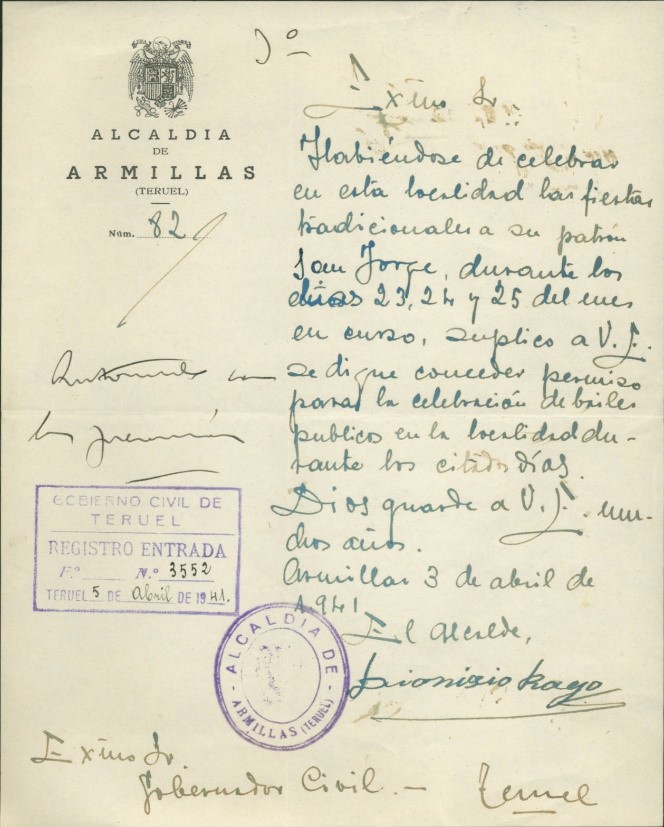 Jº
ALCALDIA
DE
ARMILLAS
(TERUEL)
Núm. 82
Exmo Sr.
Habiéndose de celebrar
en esta localidad las fiestas
tradicionales a su patrón
San Jorge, durante los
días 23, 24 y 25 del mes
en curso, suplico a V. E.
se digne conceder permiso
para la celebración de bailes
publicos en la localidad du-
rante los citados días.
Dios guarde a V. E. mu-
chos años.
Armillas 3 de abril de
1.941
El Alcalde,
Dionisio Rayo
GOBIERNO CIVIL DE
TERUEL
REGISTRO ENTRADA
Fº N.º 3552
TERUEL 5 DE Abril DE 1941.
ALCALDIA DE
ARMILLAS (TERUEL)
Exmo Sr.
Gobernador Civil. - Teruel